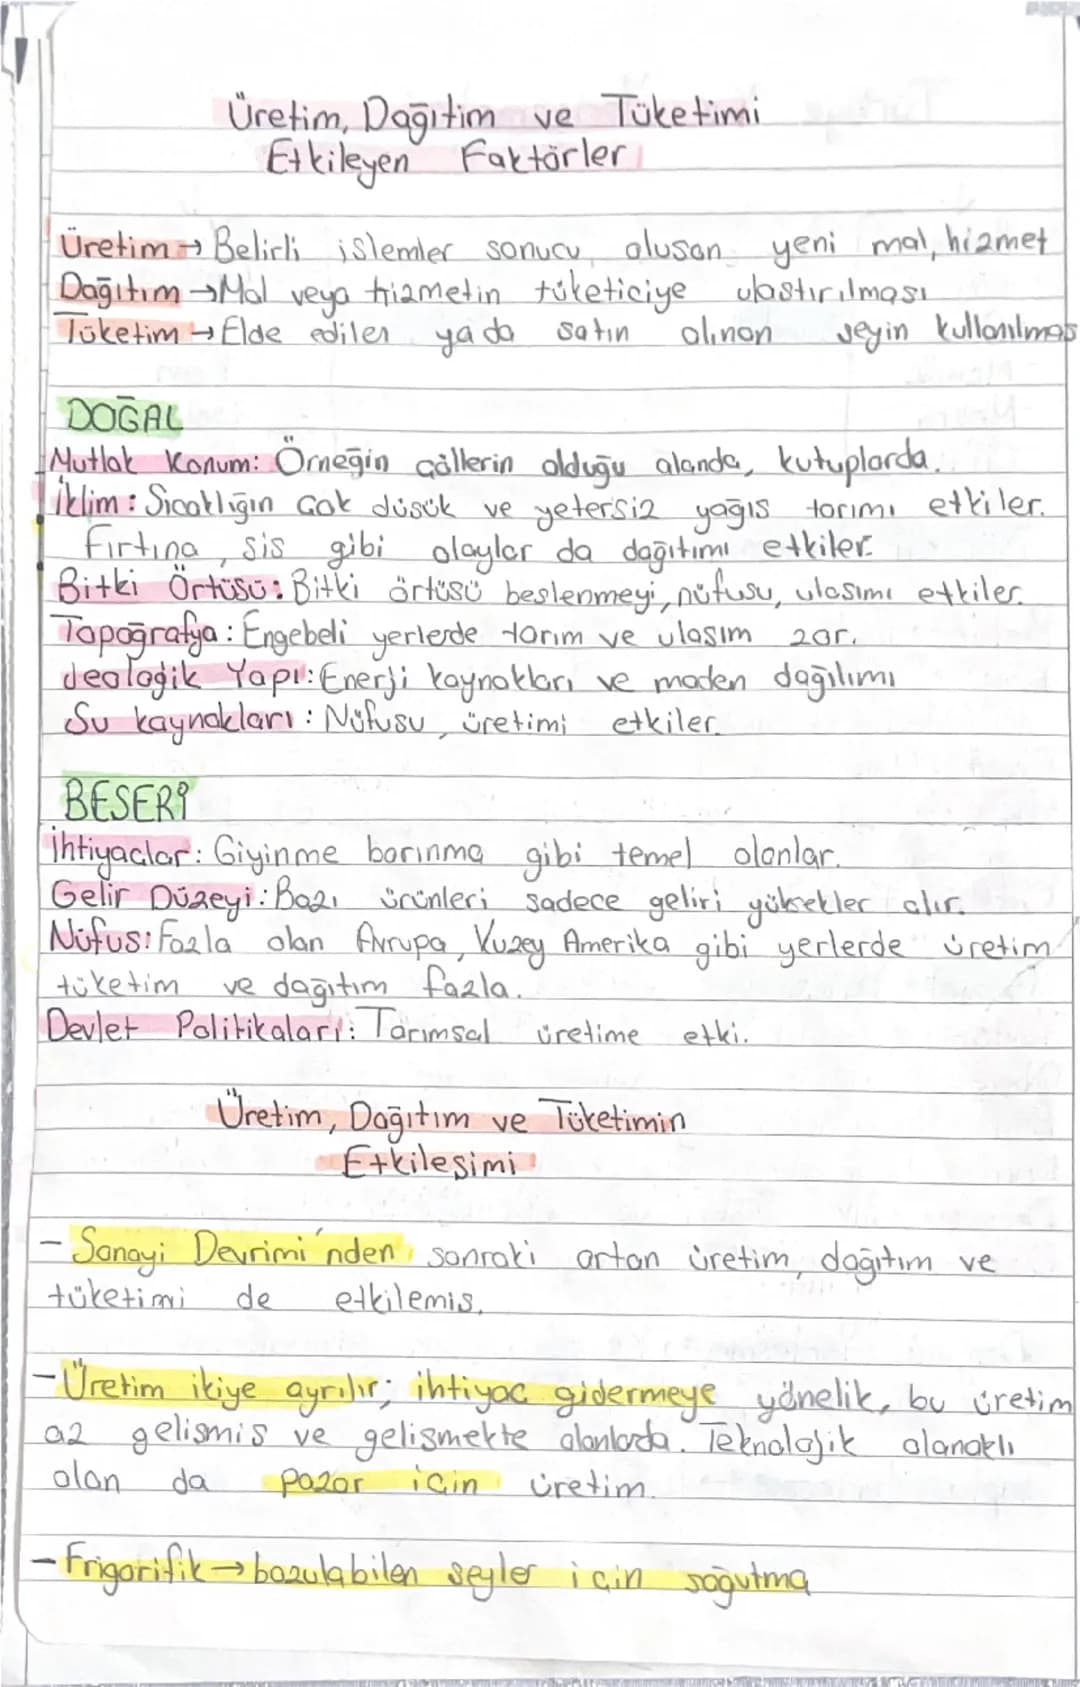 Üretim, Dağıtim ve Tüketimi
Etkileyen Faktörler
Üretim → Belirli işlemler sonucu oluşan yeni mal, hizmet
Dağıtım → Mal veya hizmetin tüketiciye ulaştırılması
Tüketim → Elde edilen ya da satın alınan şeyin kullanılması
DOĞAL
Mutlak Konum: Örneğin çöllerin olduğu alanda, kutuplarda.
İklim: Sıcaklığın çok düşük ve yetersiz yağış tarımı etkiler.
Fırtına, sis gibi olaylar da dağıtımı etkiler.
Bitki Örtüsü: Bitki örtüsü beslenmeyi, nüfusu, ulaşımı etkiler.
Topoğrafya: Engebeli yerlerde tarım ve ulaşım zor.
Jeolojik Yapı: Enerji kaynakları ve maden dağılımı
Su kaynakları: Nüfusu, üretimi etkiler.
BEŞERİ
İhtiyaçlar: Giyinme barınma gibi temel olanlar.
Gelir Düzeyi: Bazı ürünleri sadece geliri yüksekler alır.
Nüfus: Fazla olan Avrupa, Kuzey Amerika gibi yerlerde üretim
tüketim ve dağıtım fazla.
Devlet Politikaları: Tarımsal üretime etki.
Üretim, Dağıtım ve Tüketimin
Etkileşimi
- Sanayi Devrimi'nden sonraki artan üretim, dağıtım ve
tüketimi de etkilemiş.
- Üretim ikiye ayrılır; ihtiyaç gidermeye yönelik, bu üretim
az gelişmiş ve gelişmekte olanlarda. Teknolojik olanaklı
olan da pazar için üretim.
- Frigorifik → bozulabilen şeyler için soğutma